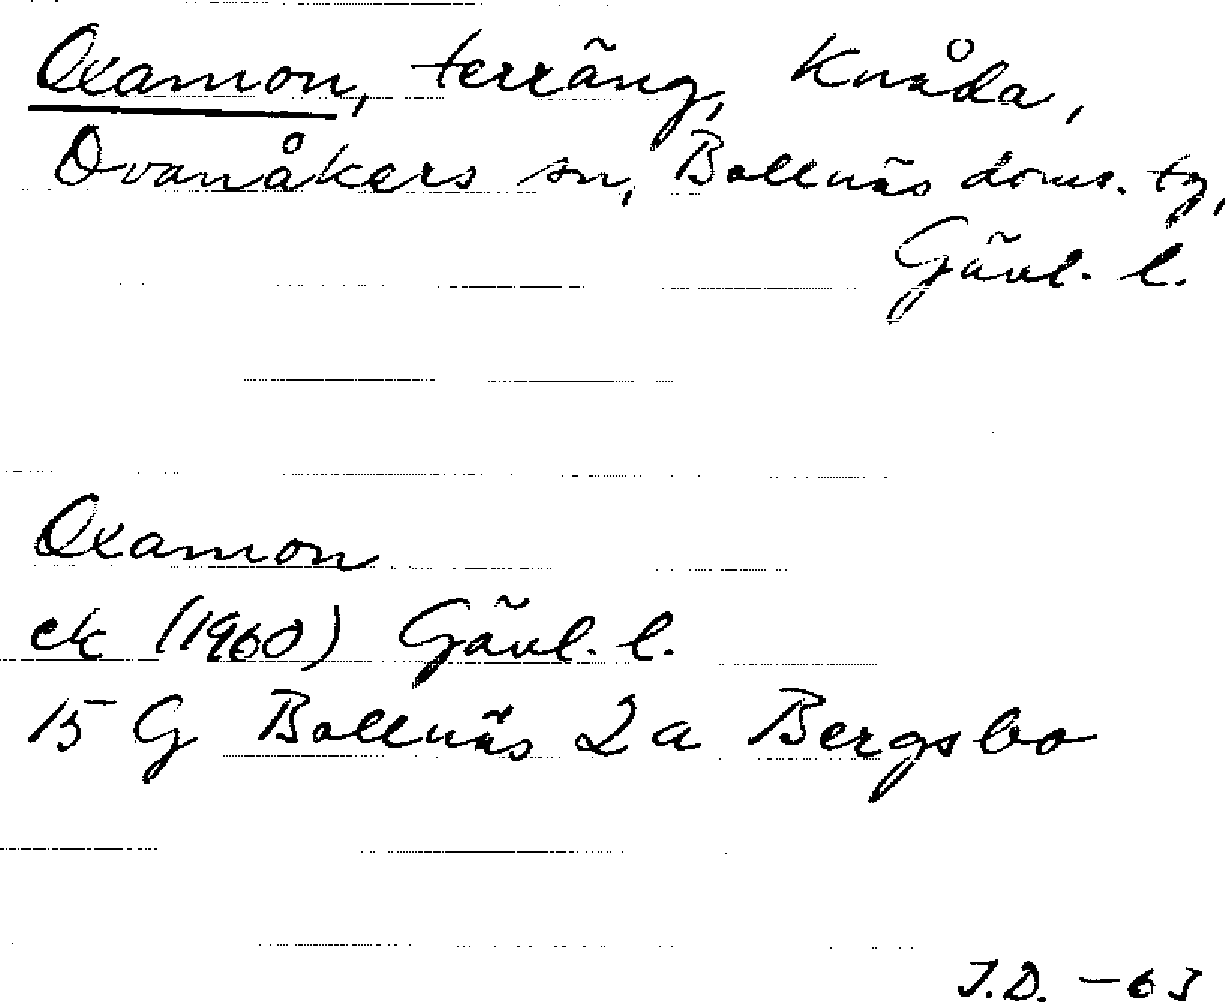 Oxamon, terräng, Knåda,
Ovanåkers sn, Bollnäs doms. tg,
Gävl. l.
Oxamon
ek (1960) Gävl. l.
15 G Bollnäs 2a Bergsbo
J.D. -63